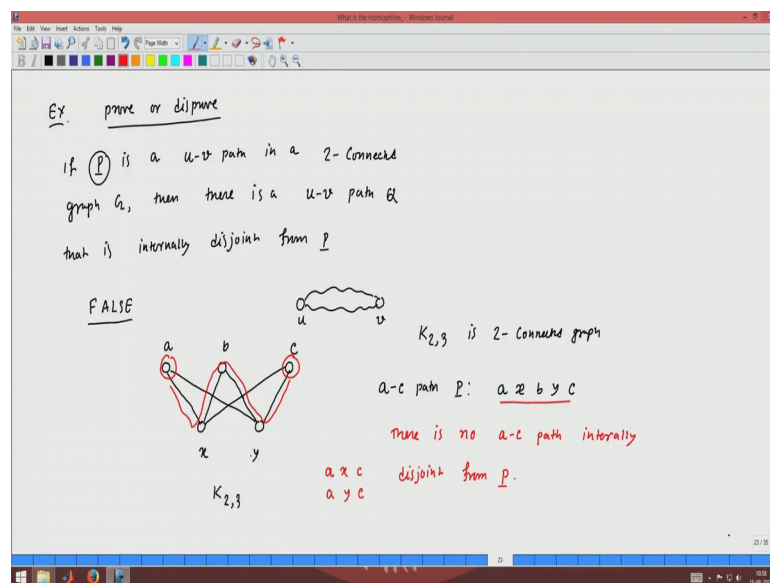 What is the Homophiles_ - Windows Journal
File Edit View Insert Actions Tools Help
Page Width
B I
Ex. prove or disprove
If P is a u-v path in a 2-Connected
graph G, then there is a u-v path Q
that is internally disjoint from P
FALSE
u v
a b c
x y
K2,3
K2,3 is 2-Connected graph
a-c path P: a x b y c
There is no a-c path internally
disjoint from P.
a x c
a y c
23 / 35
23
10:58